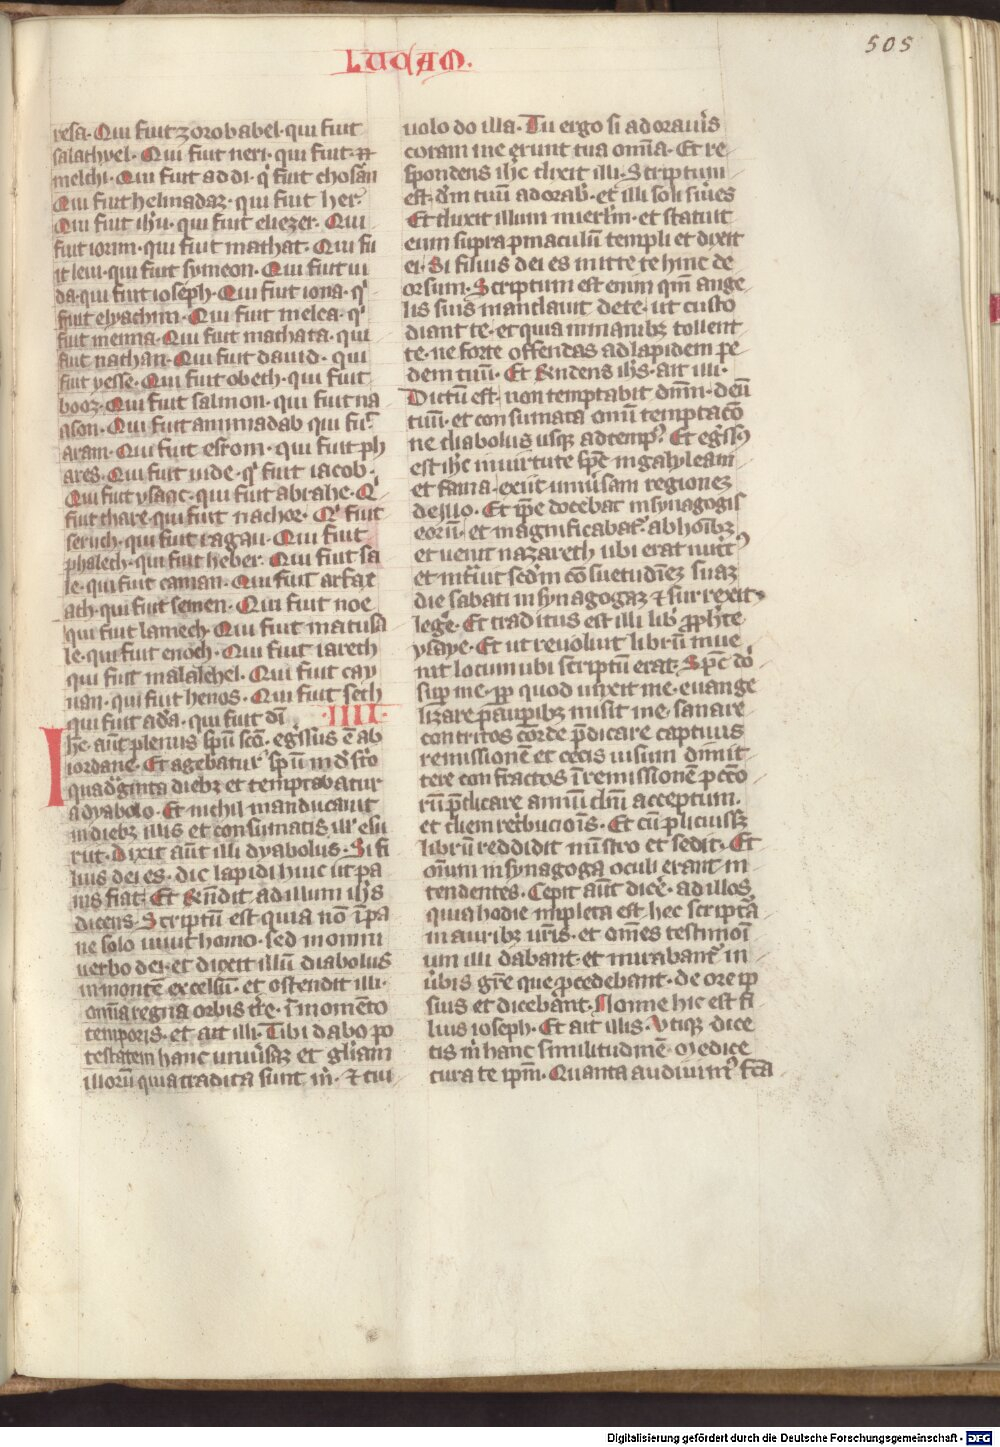 LUCAM.
505
resa. Qui fuit zorobabel. qui fuit
salathyel. Qui fuit neri. qui fuit
melchi. Qui fuit addi. qͥ fuit chosan
Qui fuit helmadaz. qui fuit her.
Qui fuit ih̄u. qui fuit eliezer. Qui
fuit iorim. qui fuit mathat. Qui fu
it leui. qui fuit symeon. Qui fuit iu
da. qui fuit ioseph. Qui fuit iona. qͥ
fuit elyachim. Qui fuit melea. qͥ
fuit menna. Qui fuit mathata. qui
fuit nathan. Qui fuit dauid. qui
fuit yesse. Qui fuit obeth. qui fuit
booz. Qui fuit salmon. qui fuit na
ason. Qui fuit aminadab qui fuͥᵗ
aram. Qui fuit esrom. qui fuit ph
ares. Qui fuit iude. qͥ fuit iacob.
Qui fuit ysaac. qui fuit abrahe. Qͥ
fuit thare. qui fuit nachor. Qͥ fuit
seruch. qui fuit ragau. Qui fuit
phalech. qui fuit heber. Qui fuit sa
le. qui fuit cainan. Qui fuit arfax
ath. qui fuit semen. Qui fuit noe
qui fuit lamech. Qui fuit matusa
le. qui fuit enoch. Qui fuit iareth
qui fuit malalehel. Qui fuit cay
nan. qui fuit henos. Qui fuit seth
qui fuit ada. qui fuit dī. .IIII.
Ihc̄ aūt plenus spū scō. egissus ē ab
iordane. Et agebatur spū in d̄sto
quadͣginta diebꝫ et temptabatur
a dyabolo. Et nichil manducauit
in diebꝫ illis et consumatis ill' esu
rīt. Dixit aūt illi dyabolus. Si fi
lius dei es. dic lapidi huic ut pa
nis fiat. Et Rn̄dit ad illum ih̄s
dicens. Scriptū est quia nō ī pa
ne solo uiuit homo. sed in omni
uerbo dei. et dixit illū diabolus
in montē excelsū. et ostendit illi.
omīa regna orbis tr̄e. ī momēto
temporis. et ait illi. Tibi dabo po
testatem hanc uniu̾saꝫ et gl̄iam
illorū quia tradita sunt m̄. ⁊ cui
uolo do illa. Tu ergo si adorau̾is
coram me erunt tua om̄ia. Et re
spondens ih̄c dixit illi. Scriptum
est. dn̄m tuū adorab̾. et illi soli su̾ies
Et duxit illum in ierl̄m. et statuit
eum supra pinnaculū templi et dixit
ei. Si filius dei es mitte te hinc de
orsum. Scriptum est enim qm̄ ange
lis suis mandauit de te. ut custo
diant te. et quia in manibꝫ tollent
te. ne forte offendas ad lapidem pe
dem tuū. Et Rn̄dens ih̄s. ait illi.
Dictū est. non temptabit dn̄m. deū
tuū. et consumata om̄i temptacō
ne diabolus usqꝫ ad temp̾. Et eg̾ss̾
est ih̄c in uirtute sp̄c in galyleam
et fama. exiit uniu̾sam regionez
de illo. Et ip̄e docebat in synagogis
eorū. et magnificabatᷣ. ab hoībꝫ
et uenit nazareth ubi erat nut̾t̾
et intͣuit scd̄m cōsuetudinez suaz
die sabati in synagogaz ⁊ surrexit
lege̾. Et traditus est illi lib̾ ꝓph̄te
ysaye. Et ut reuoluit librū inue
nit locum ubi scriptū erat. Sp̄c dō
sup me. ꝓp quod unxit me. euange
lizare paup̄ibꝫ misit me. sanare
contritos corde p̄dicare captiuis
remissionē et cecis uisum dimit
tere confractos ī remissionē p̄cō
rū p̄dicare annū dn̄i acceptum.
et diem ret̾bucioīs. Et cū plicuissꝫ
librū reddidit minīstro et sedit. Et
oīum in synagoga oculi erant in
tendentes. Cepit aūt dice̾. ad illos
quia hodie impleta est hec scriptͣa
in auribꝫ ur̄is. et om̄es testimoī
um illi dabant. et mirabantᷣ in
u̾bis gr̄e que ꝓcedebant. de ore ip
sius et dicebant. Nonne hic est fi
lius ioseph. Et ait illis. Utiqꝫ dice
tis m̄ hanc similitudinē. Medice
cura te ip̄m. Quanta audiuim̾ fc̄a
Digitalisierung gefördert durch die Deutsche Forschungsgemeinschaft - DFG